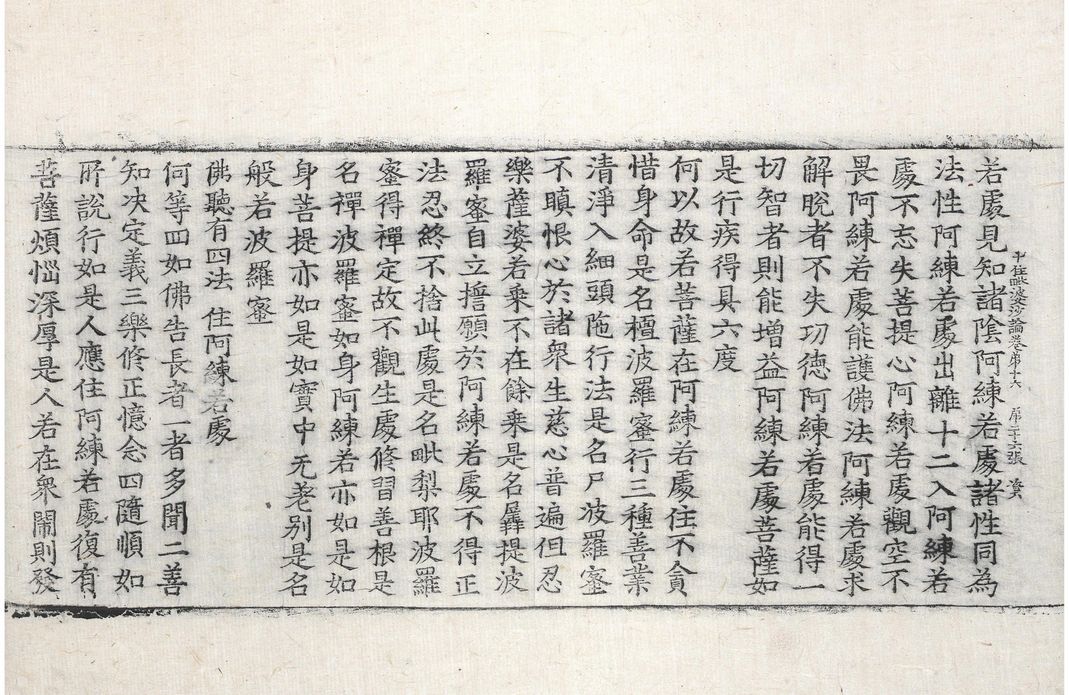 若處見知諸陰阿練若處諸性同為
十住毗婆沙論卷第十六　第二十六張　資
法性阿練若處出離十二入阿練若
處不忘失菩提心阿練若處觀空不
畏阿練若處能護佛法阿練若處求
解脫者不失功德阿練若處能得一
切智者則能增益阿練若處菩薩如
是行疾得具六度
何以故若菩薩在阿練若處住不貪
惜身命是名檀波羅蜜行三種善業
清淨入細頭陁行法是名尸波羅蜜
不瞋恨心於諸衆生慈心普遍但忍
樂薩婆若乘不在餘乘是名羼提波
羅蜜自立誓願於阿練若處不得正
法忍終不捨此處是名毗梨耶波羅
蜜得禪定故不觀生處修習善根是
名禪波羅蜜如身阿練若亦如是如
身菩提亦如是如實中无差别是名
般若波羅蜜
佛聽有四法 住阿練若處
何等四如佛告長者一者多聞二善
知决定義三樂修正憶念四隨順如
所說行如是人應住阿練若處復有
菩薩煩惱深厚是人若在衆閙則發